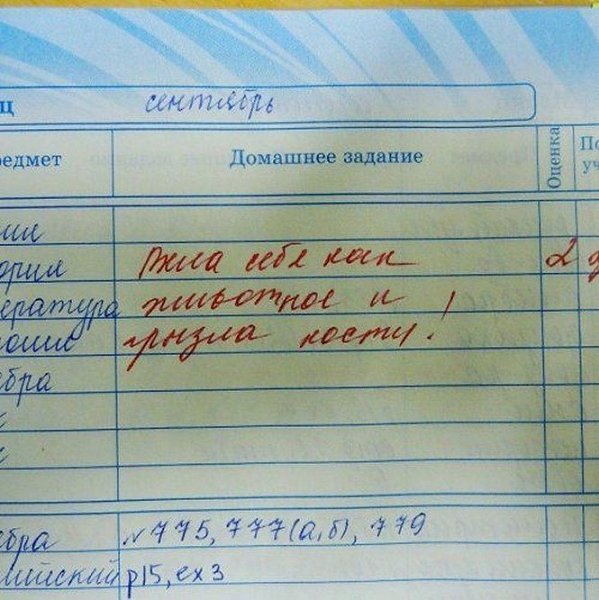 ц сентябрь
редмет Домашнее задание Оценка По
уч
ория Вела себя как 2
ература животное и
грызла кости!
бра
бра №775, 777(а,б), 779
лийский p15, ex3